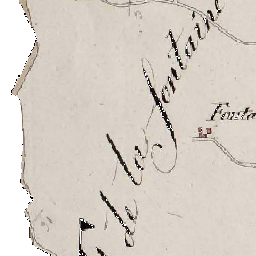 de la fontaine
Fonta